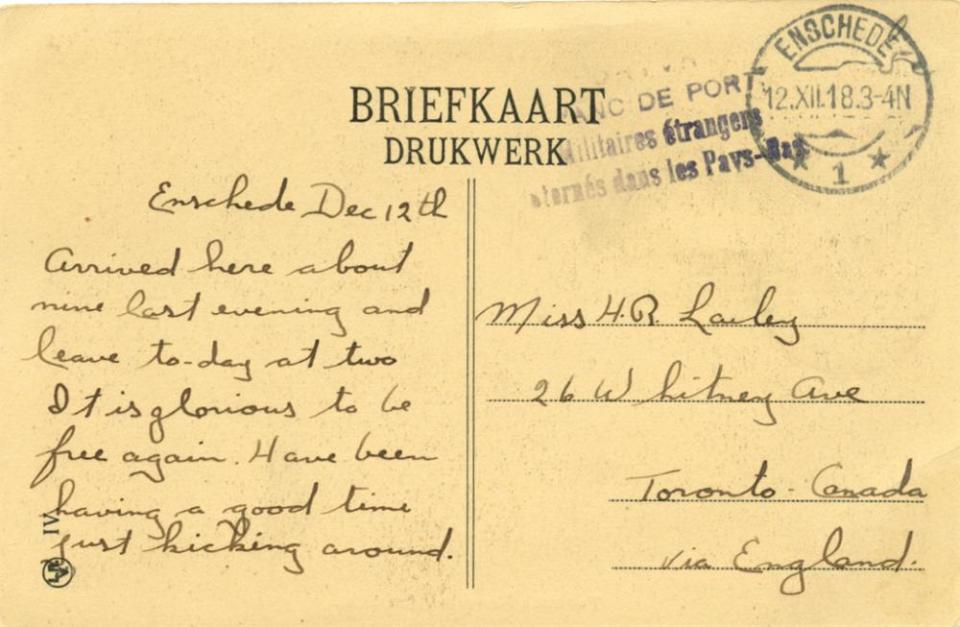 BRIEFKAART
DRUKWERK
ANC DE PORT
Militaires étrangers
ternés dans les Pays-Bas
ENSCHEDE
12.XII.18.3-4N
1
Enschede Dec 12th
Arrived here about
nine last evening and
leave to-day at two
It is glorious to be
free again. Have been
having a good time
just kicking around.
Miss H.R. Lailey
26 Whitney Ave
Toronto - Canada
via England.
IV